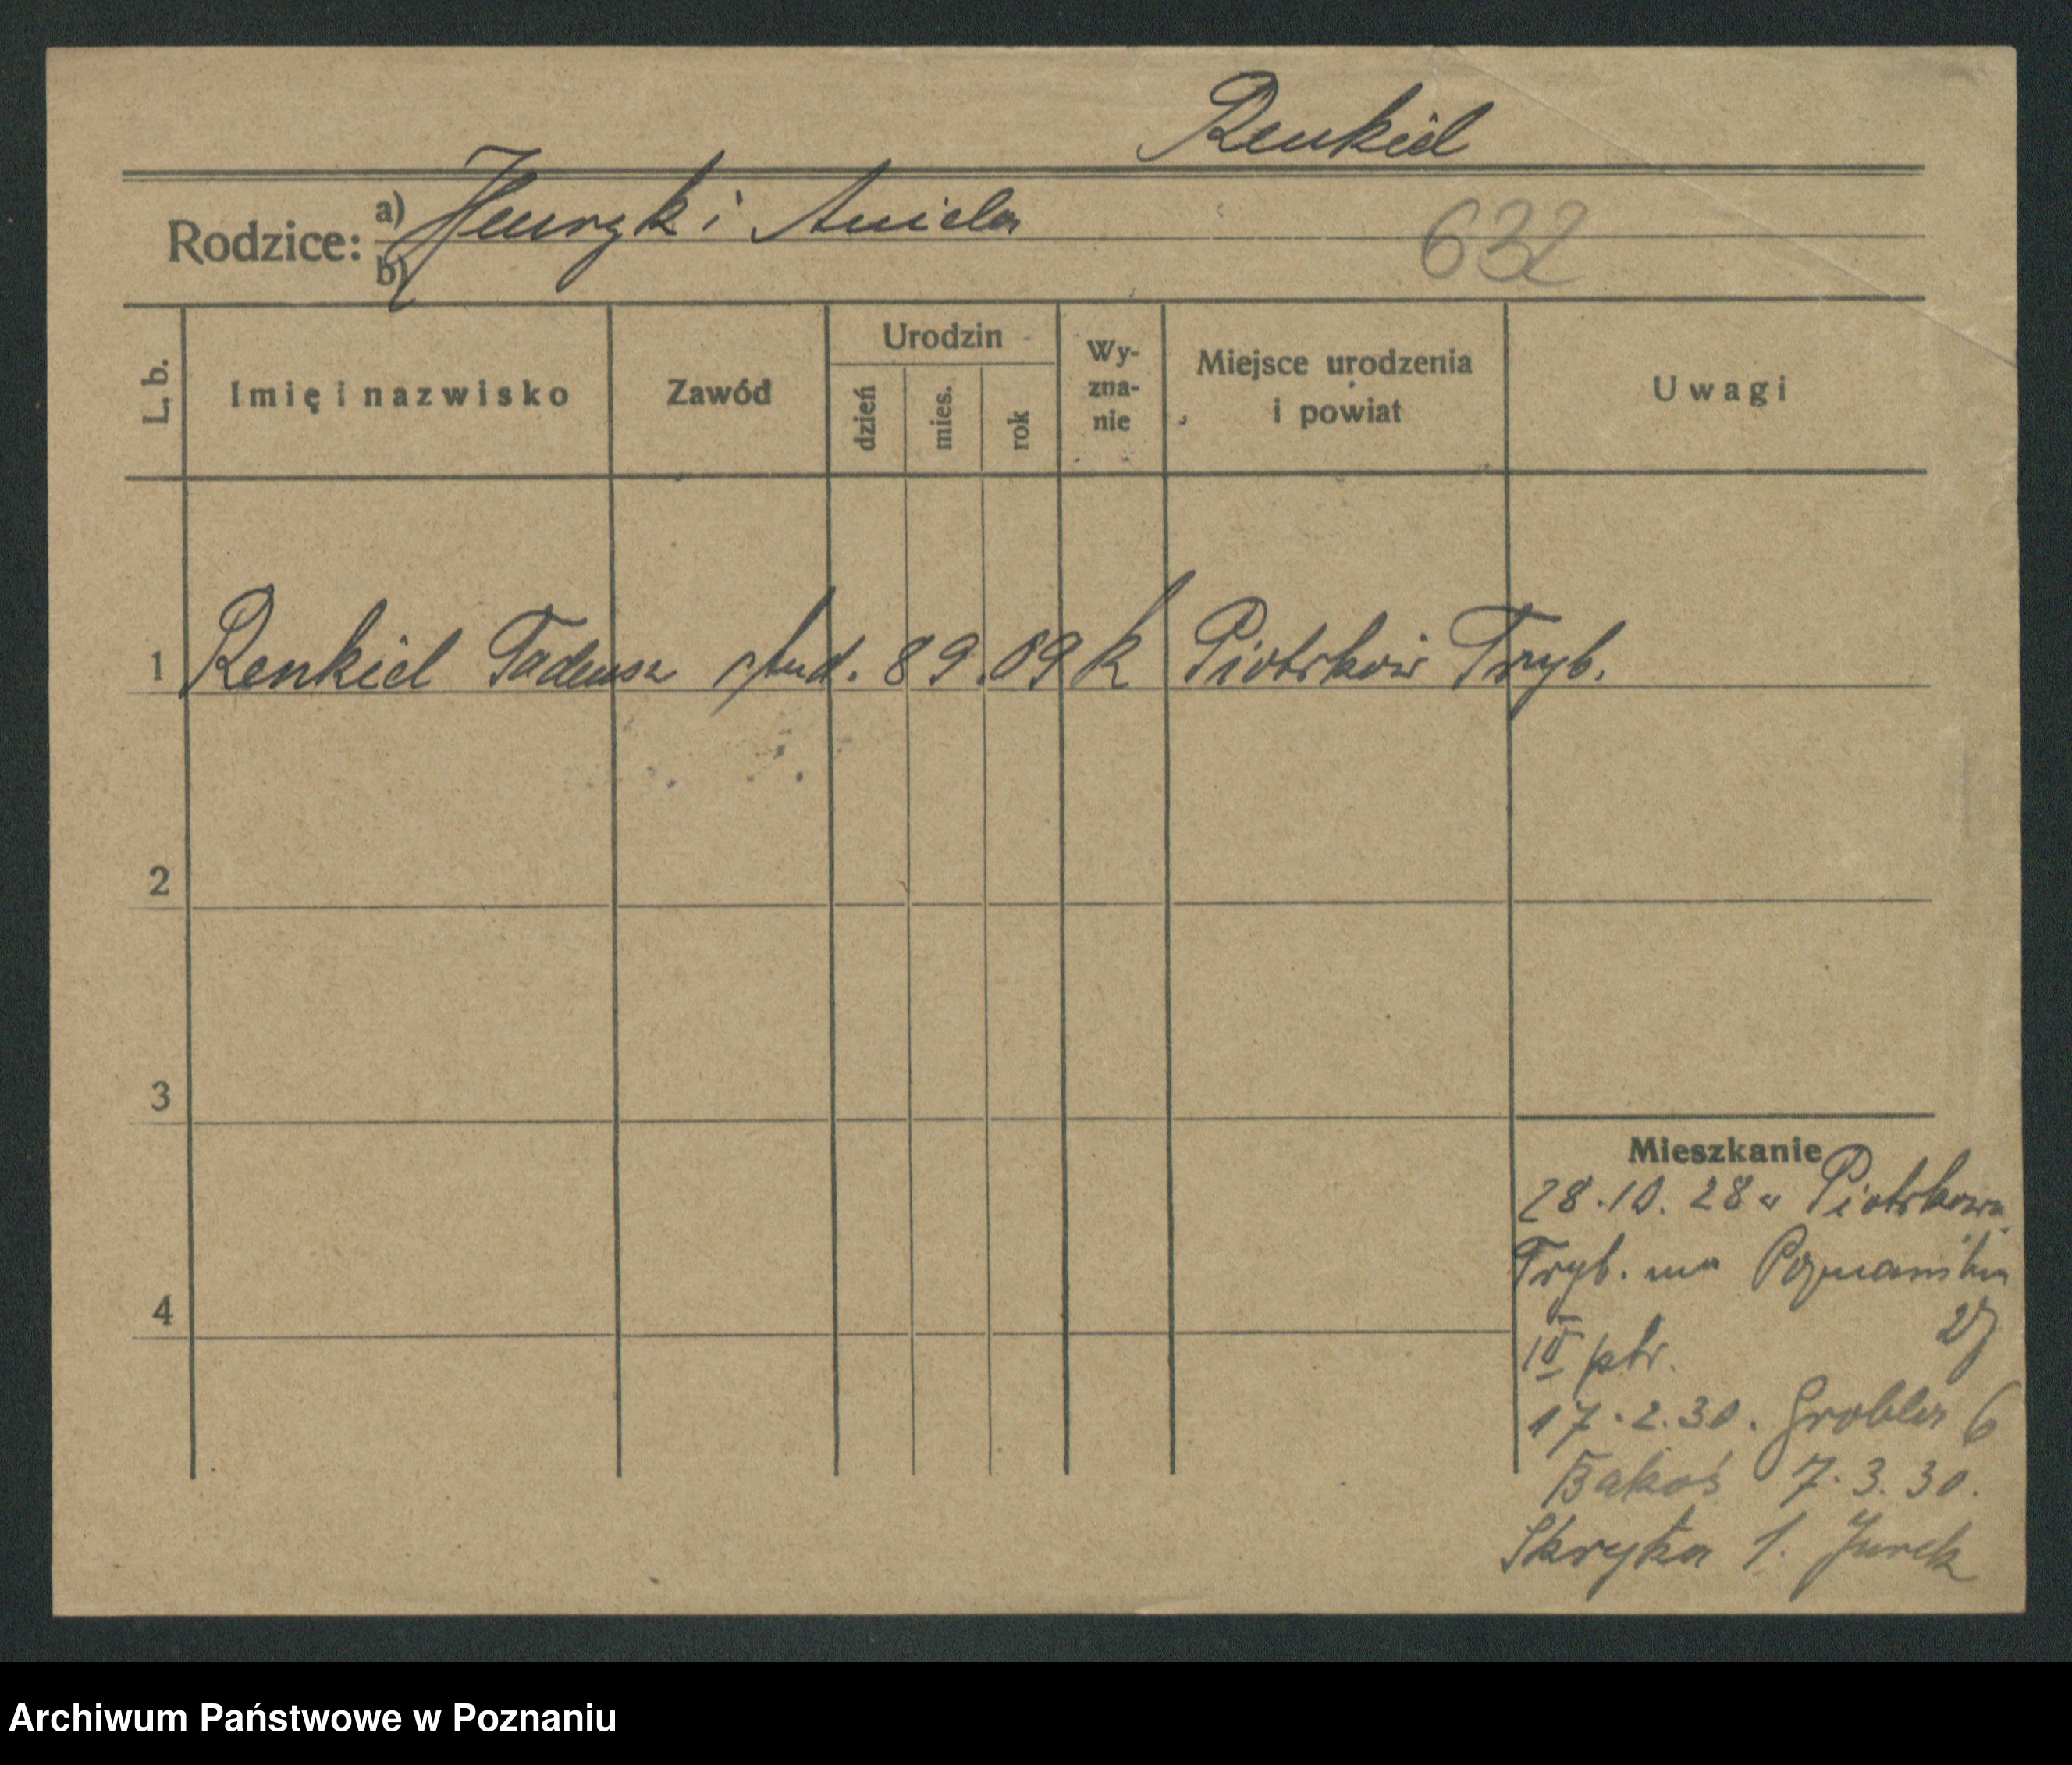 Renkiel
Rodzice: a) Henryk i Aniela
b)
632
L. b.
Imię i nazwisko
Zawód
Urodzin
dzień
mies.
rok
Wy-
zna-
nie
Miejsce urodzenia
i powiat
Uwagi
1 Renkiel Tadeusz stud. 8 9. 09 k Piotrków Tryb.
2
3
4
Mieszkanie
28.10.28 z Piotrkowa
Tryb. na Poznańska
27
IV ptr.
17.2.30. Grobla 6
Bakoś 7.3.30.
Skryta 1. Jurek
Archiwum Państwowe w Poznaniu